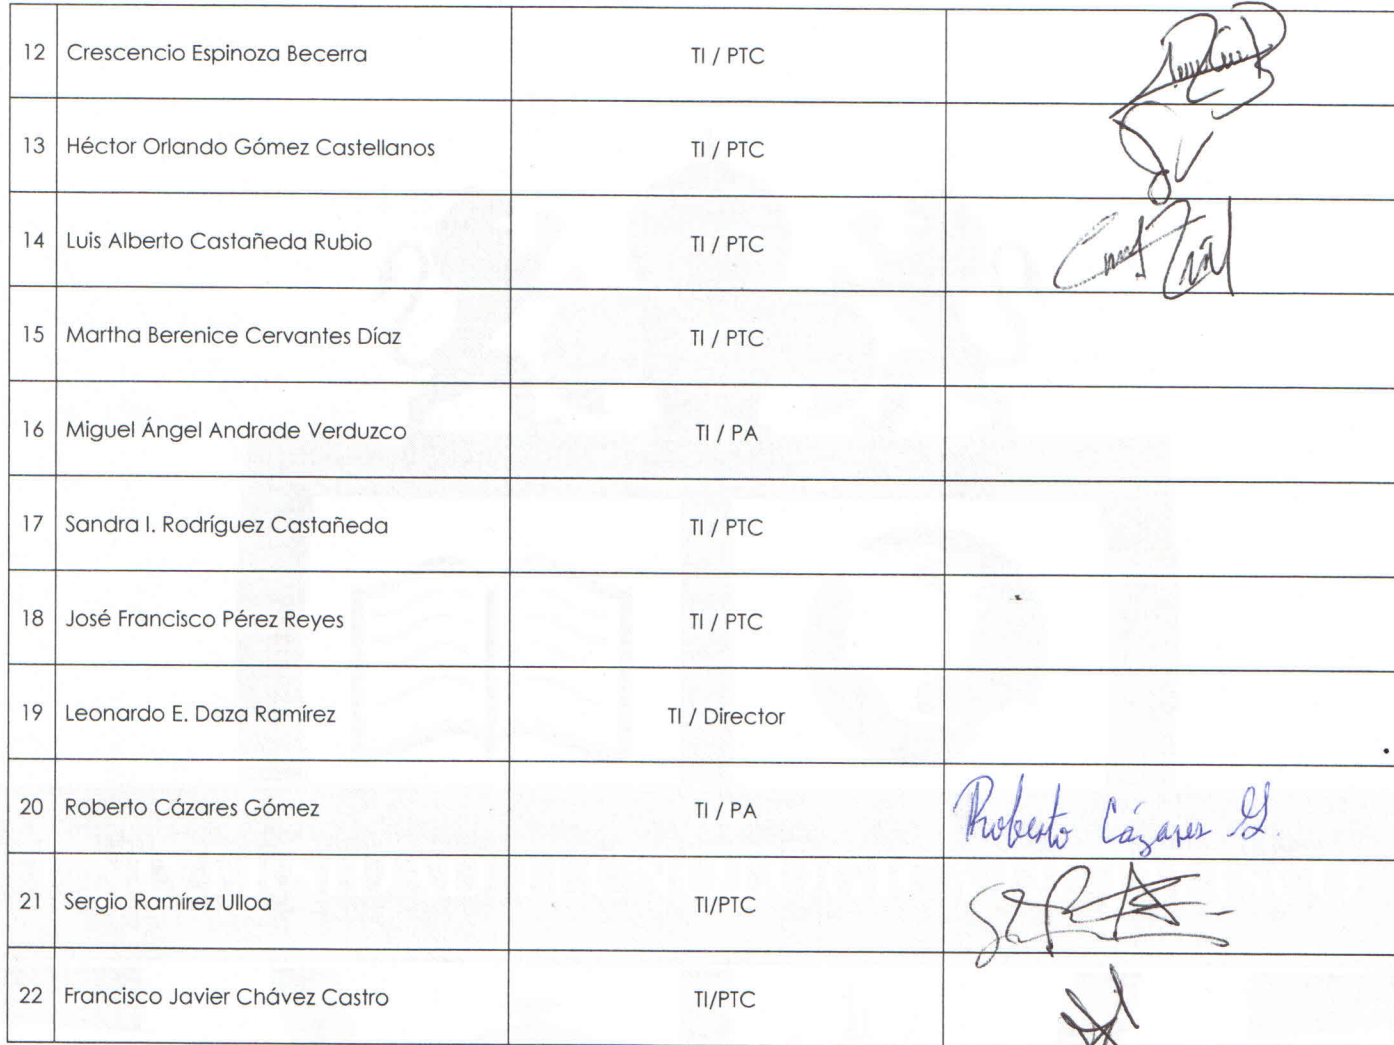 12 Crescencio Espinoza Becerra TI / PTC
13 Héctor Orlando Gómez Castellanos TI / PTC
14 Luis Alberto Castañeda Rubio TI / PTC
15 Martha Berenice Cervantes Díaz TI / PTC
16 Miguel Ángel Andrade Verduzco TI / PA
17 Sandra I. Rodríguez Castañeda TI / PTC
18 José Francisco Pérez Reyes TI / PTC
19 Leonardo E. Daza Ramírez TI / Director
20 Roberto Cázares Gómez TI / PA Roberto Cázares G.
21 Sergio Ramírez Ulloa TI/PTC
22 Francisco Javier Chávez Castro TI/PTC